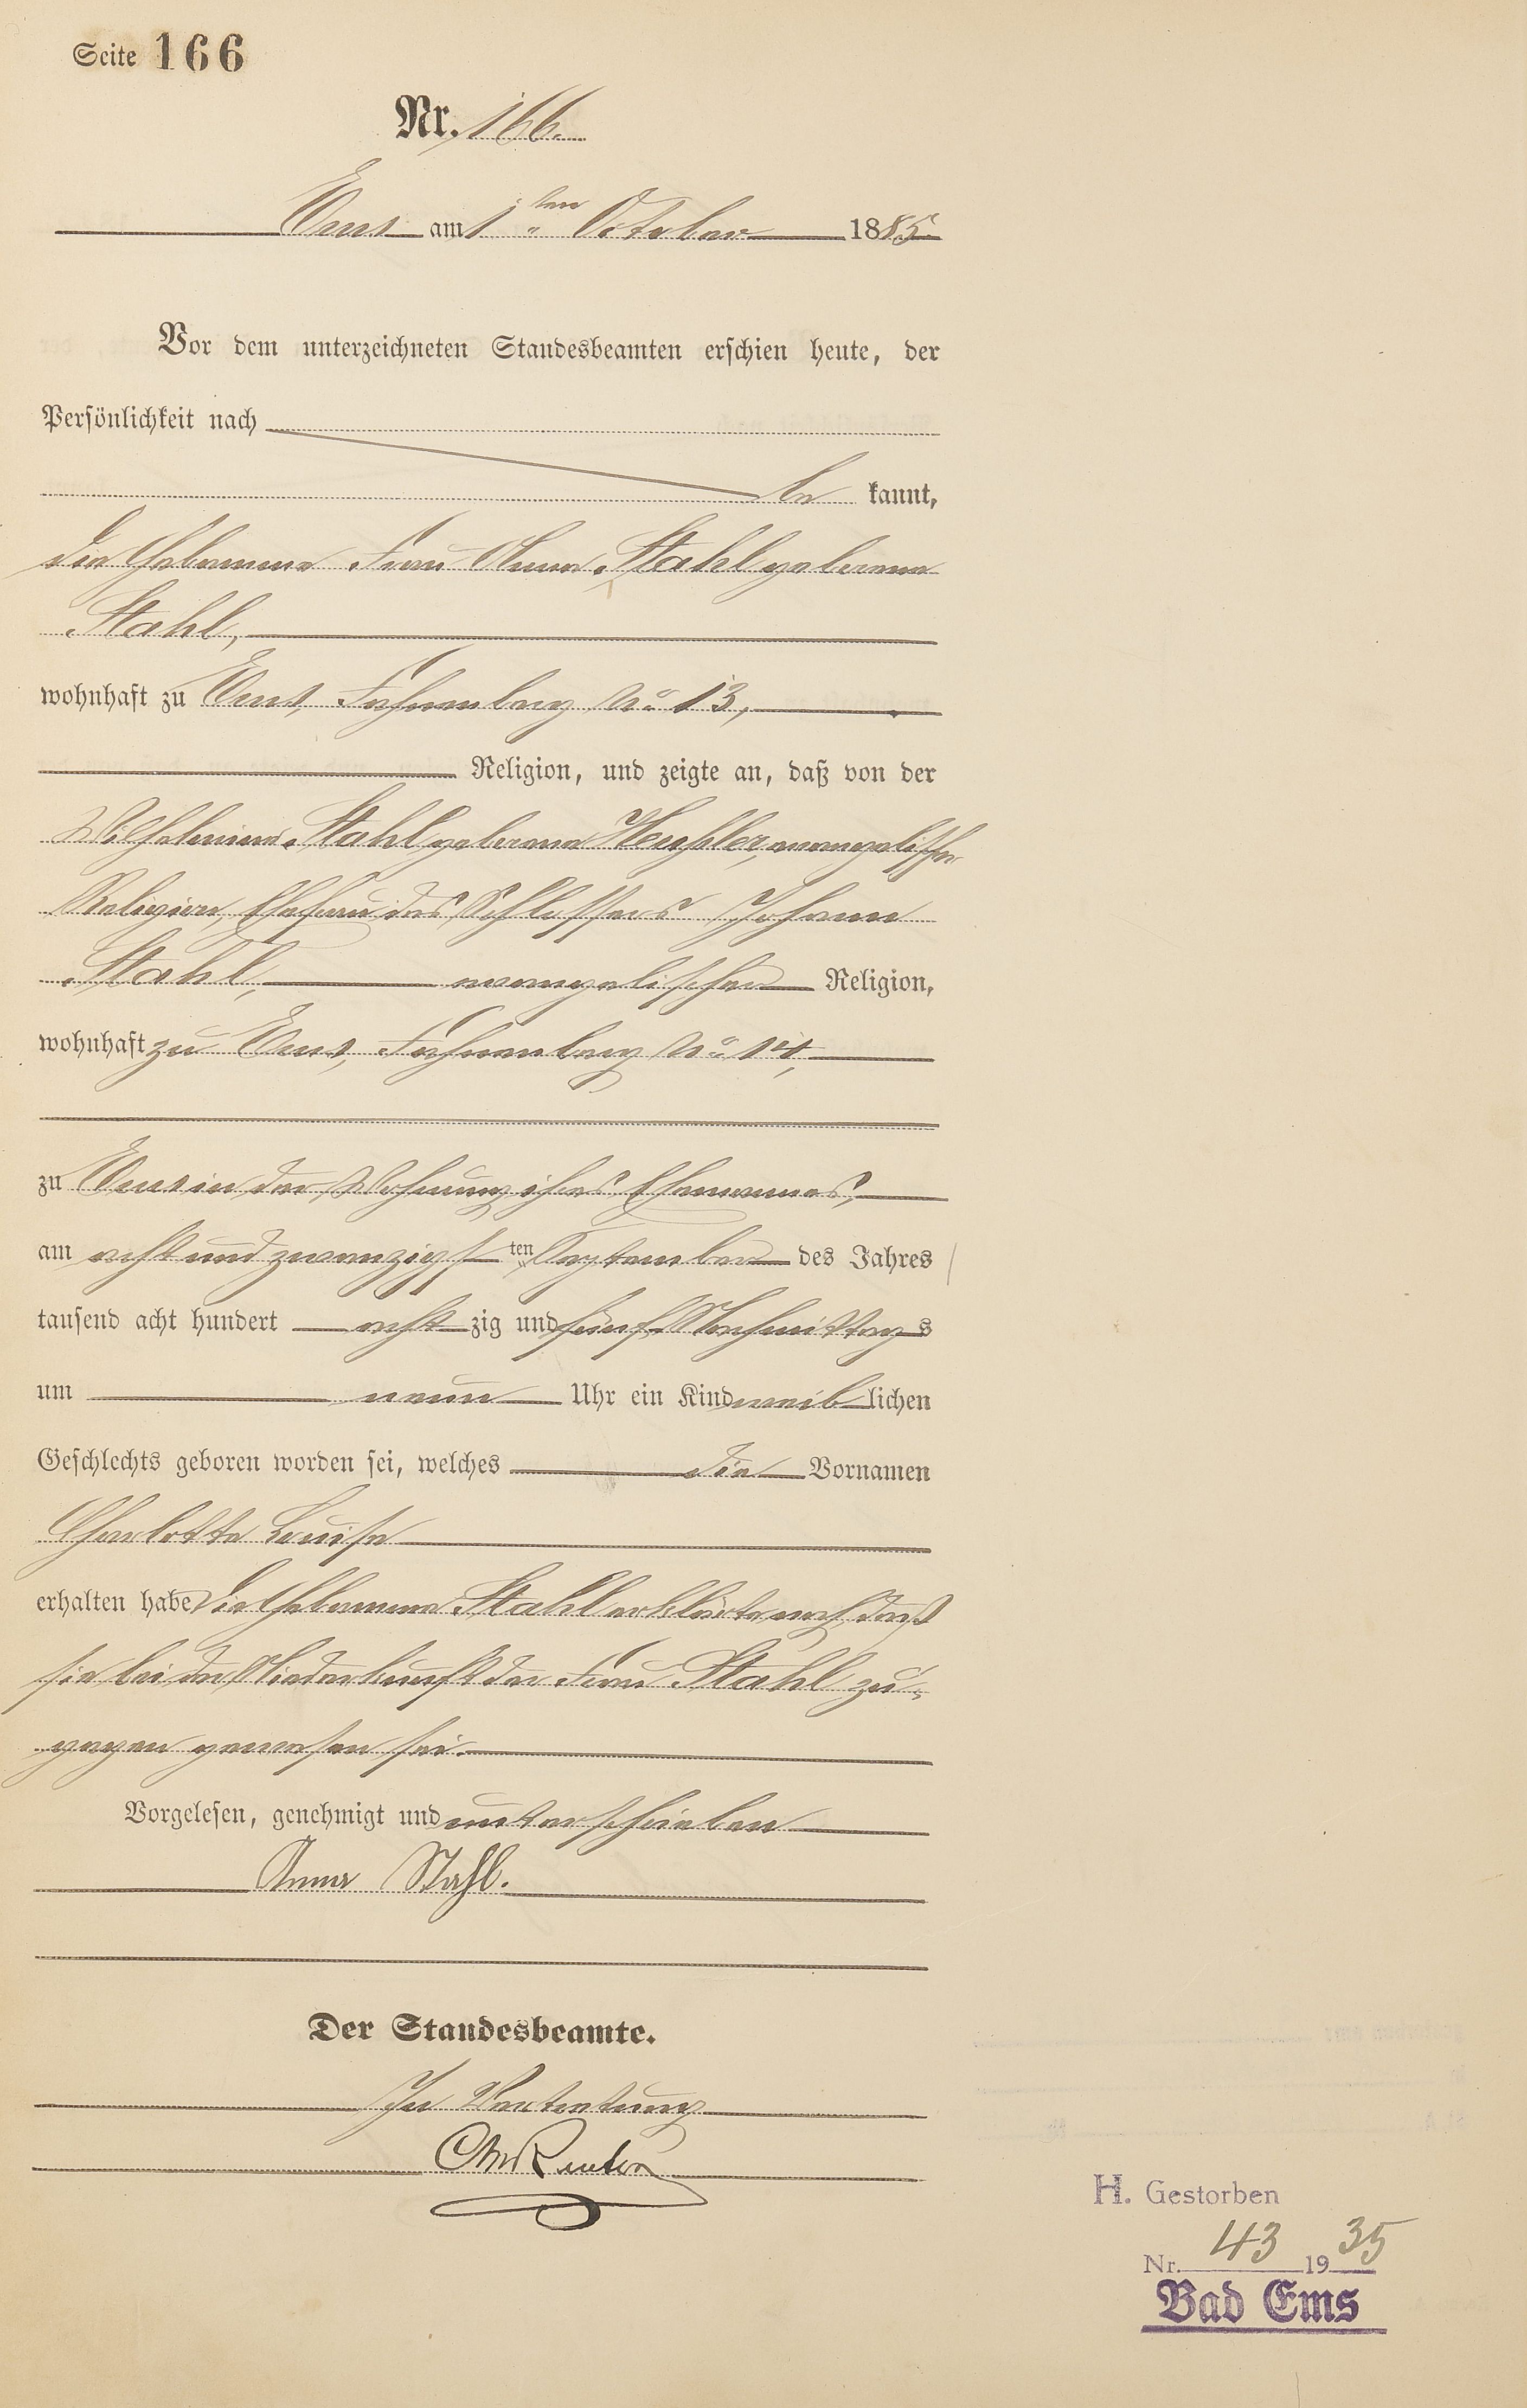 Seite 166
Nr. 166.
Ems am 1ten October 1885.
Vor dem unterzeichneten Standesbeamten erschien heute, der
Persönlichkeit nach
be kannt,
die Hebamme Frau Anna Stahl geborene
Stahl,
wohnhaft zu Ems, Fahnenberg No 13,
Religion, und zeigte an, daß von der
Wilhelmine Stahl geborene evangelischer
Religion, Ehefrau des Schlossers Johann
Stahl, evangelischer Religion,
wohnhaft zu Ems, Fahnenberg No 14,
zu Ems in der Wohnung ihres Ehemannes,
am acht und zwanzigsten September des Jahres
tausend acht hundert acht zig und fünf Nachmittags
um neun Uhr ein Kind weib lichen
Geschlechts geboren worden sei, welches die Vornamen
Charlotte Louise
erhalten habe Die Hebamme Stahl erklärte noch, daß
sie bei der Niederkunft der Frau Stahl zu-
gegen gewesen sei.
Vorgelesen, genehmigt und unterschrieben
Anna Stahl.
Der Standesbeamte.
In Vertretung
H. Gestorben
Nr. 43 1935
Bad Ems